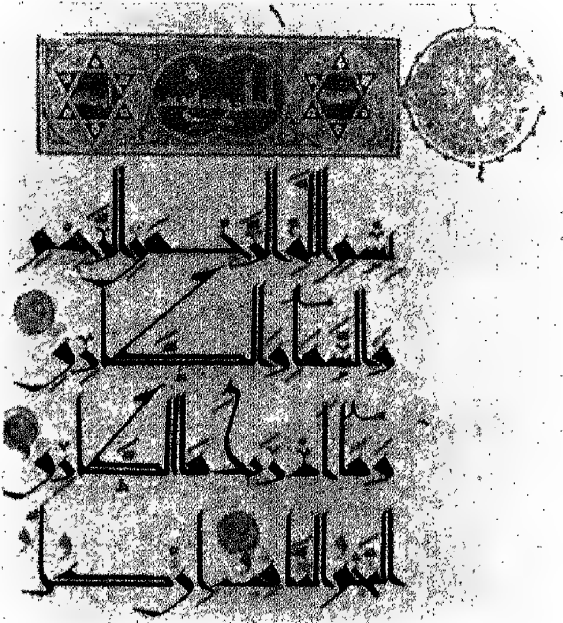 بِسْمِ اللَّهِ الرَّحْمٰنِ الرَّحِيمِ
وَالسَّمَاءِ وَالطَّارِقِ
وَمَا أَدْرٰيكَ مَا الطَّارِقُ
النَّجْمُ الثَّاقِبُ إِنْ كُلُّ